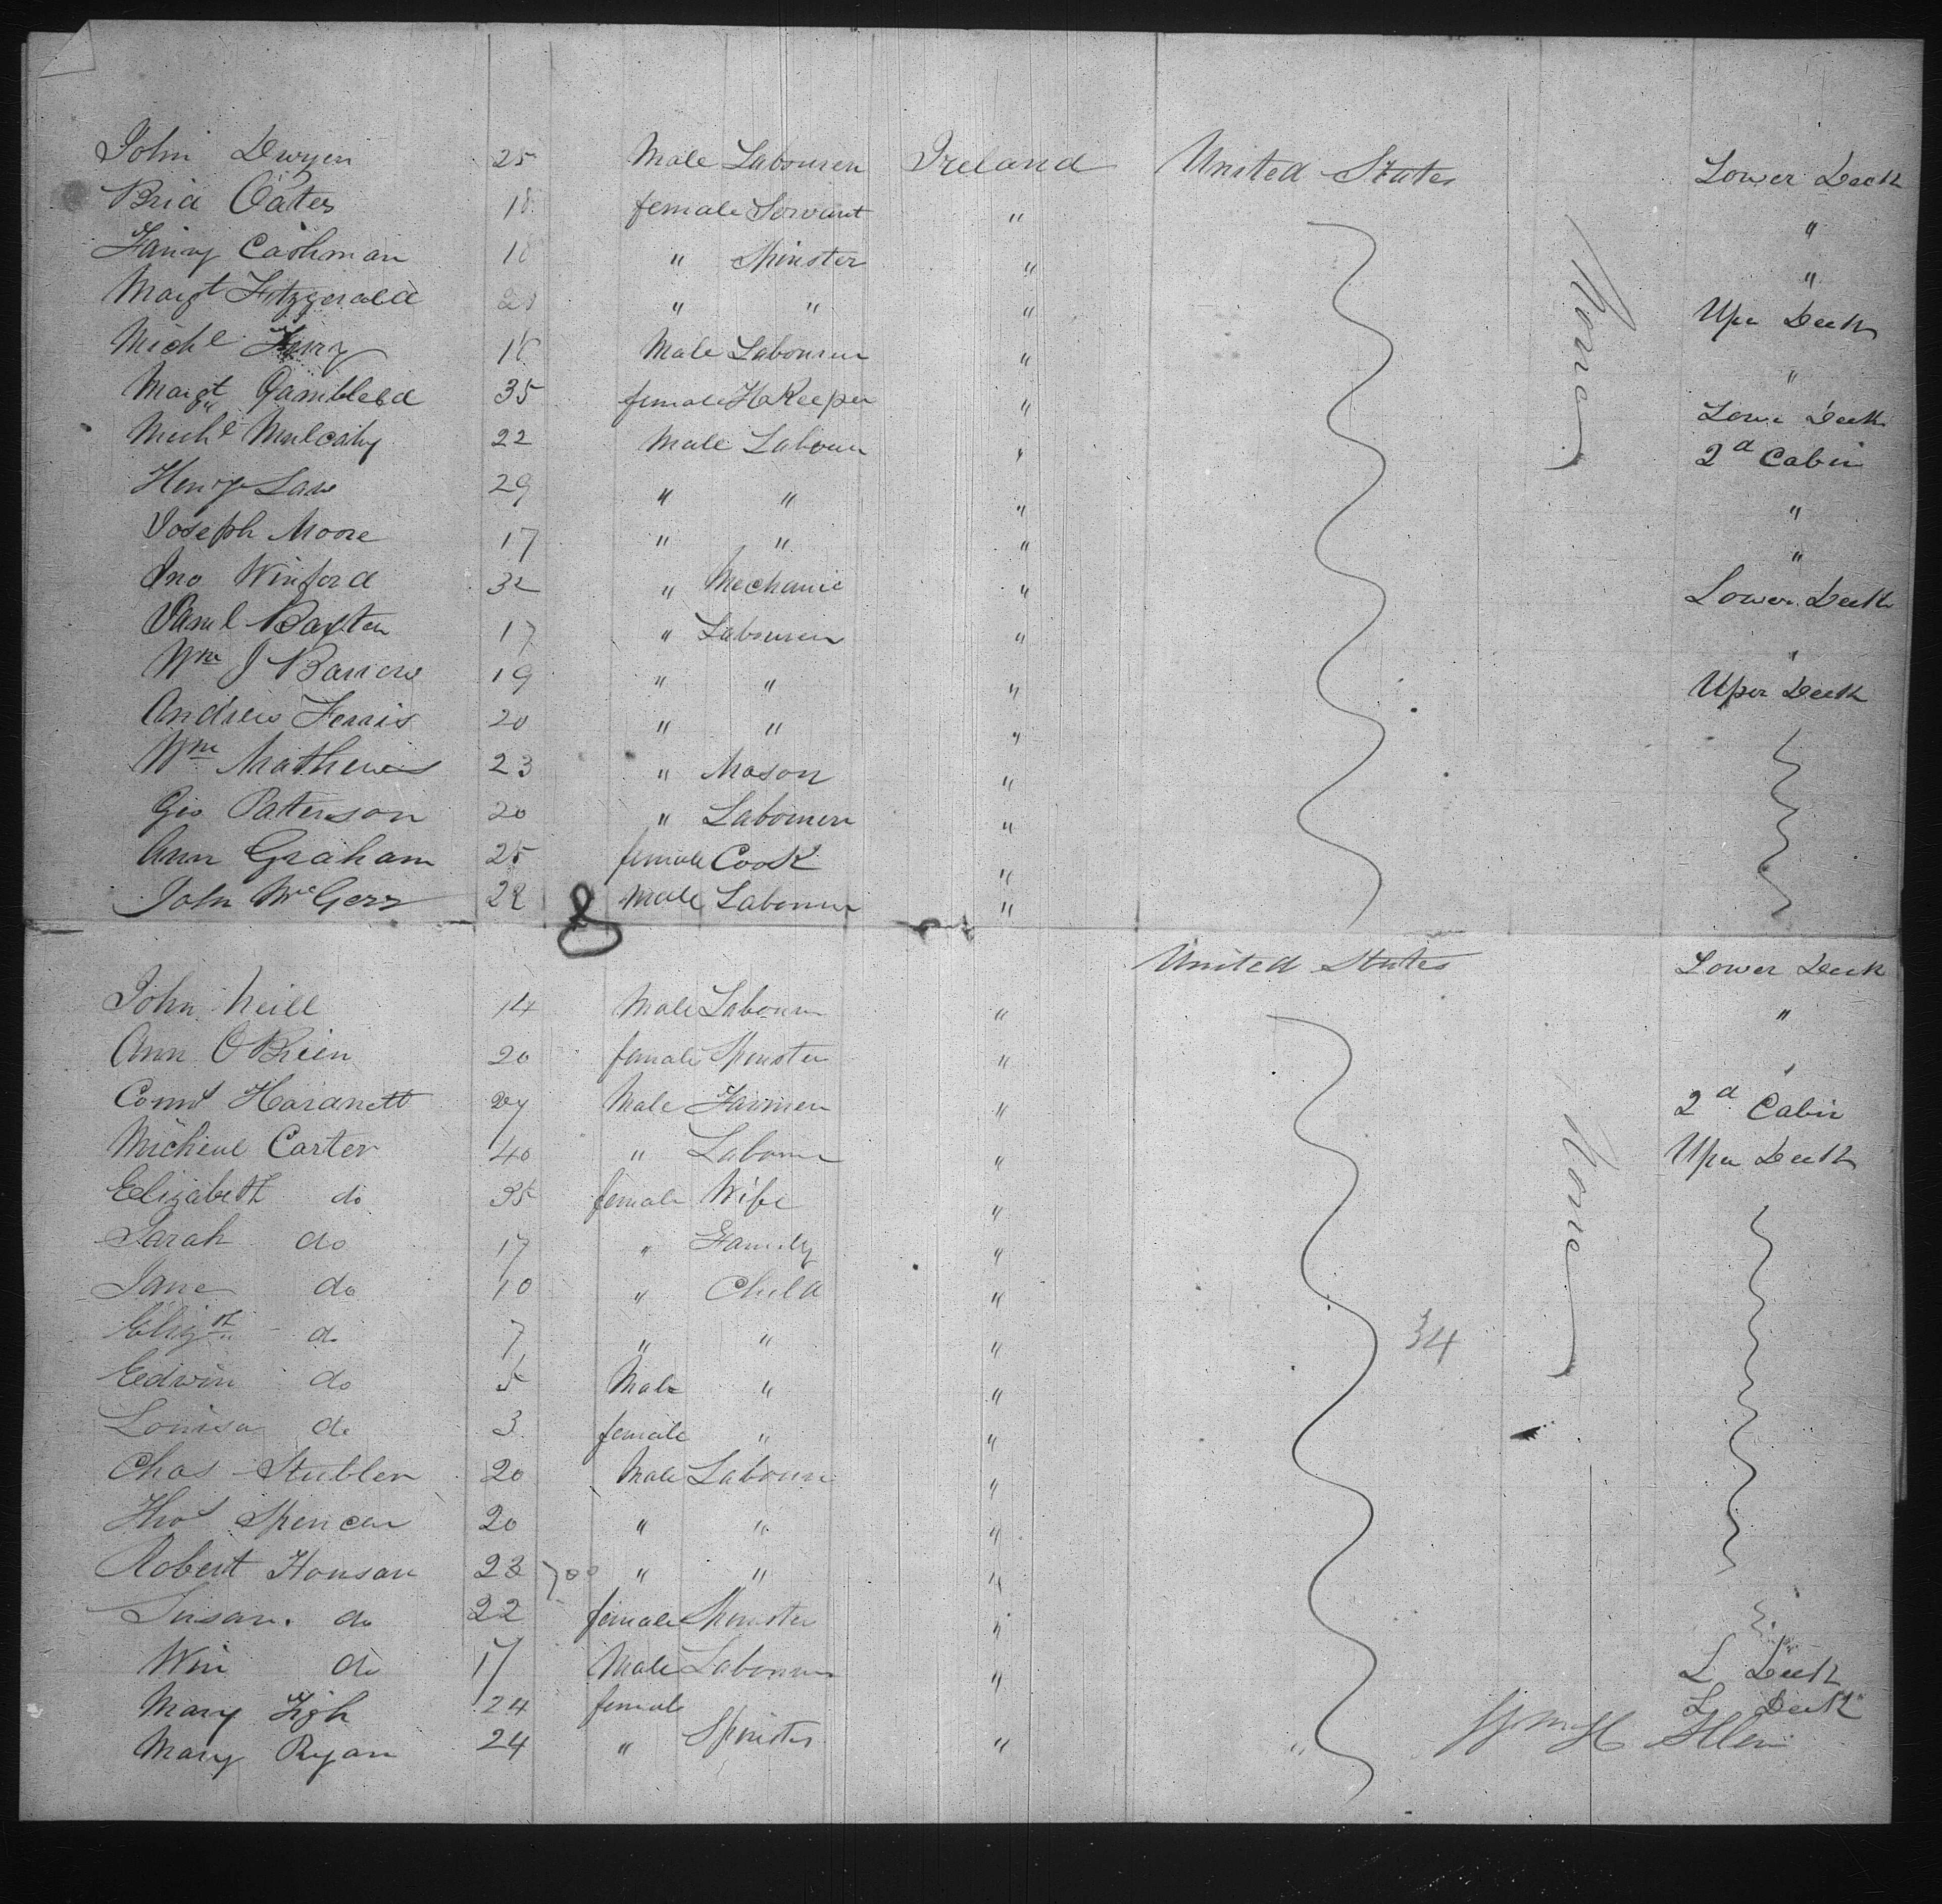 John Dwyer 25 Male Labourer Ireland United States Lower Deck
Brid Oates 18 female Servant " "
Fanny Cashman 18 " Spinster " "
Margt Fitzgerald 20 " " " Upr Deck
Michl 18 Male Labourer " "
Margt Gambleed 35 female HKeeper " Lowr Deck
Michl Mulcahy 22 Male Labour " 2d Cabin
Henry Law 29 " " " "
Joseph Moore 17 " " " "
Jno Winford 32 " Mechanic " Lower Deck
Saml Baxter 17 " Labourer " "
Wm J Barrow 19 " " " Uper Deck
Andrew Ferris 20 " " "
Wm Mathews 23 " Mason "
Geo Paterson 20 " Labourer "
Ann Graham 25 female Cook "
John McGerr 22 Male Labourer "
None
United States Lower Deck
John Neill 14 Male Labourer " "
Ann OBrien 20 female Spinster " "
Connl Haranett 27 Male Farmer " 2d Cabin
Micheal Carter 40 " Labourer " Upr Deck
Elizabeth do 35 female Wife "
Sarah do 17 " Family "
Jane do 10 " Child "
Elizth do 7 " " "
34
Edwin do 5 Male " "
Louisa do 3 female " "
Chas Stubler 20 Male Labourer "
Thos Spencer 20 " " "
Robert Housan 23 " " "
Susan do 22 female Spinster "
Wm do 17 Male Labourer " L Deck
Mary Tigh 24 female L Deck
Mary Ryan 24 " Spinster " "
None